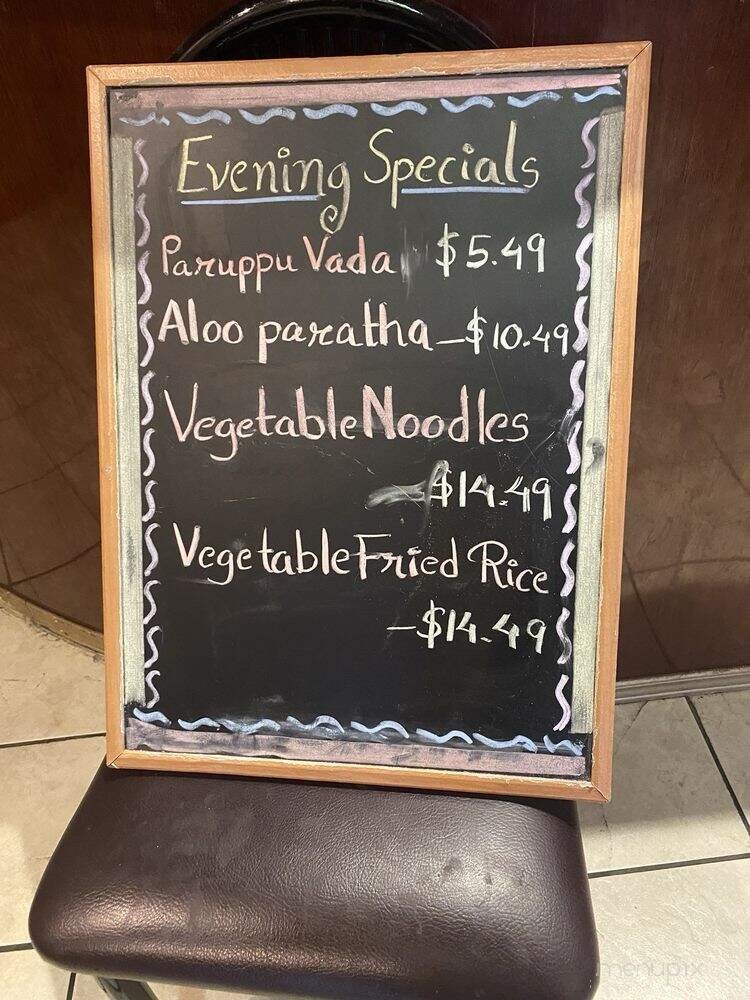 Evening Specials
Paruppu Vada $5.49
Aloo paratha-$10.49
Vegetable Noodles
-$14.49
Vegetable Fried Rice
-$14.49
menupix